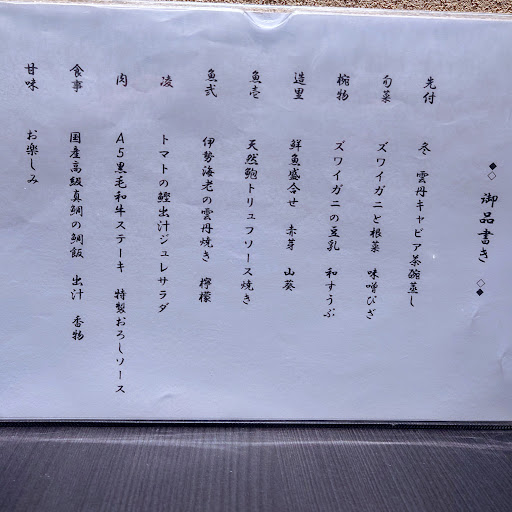 ◆◇ 御品書き ◇◆
先付 冬 雲丹キャビア茶碗蒸し
旬菜 ズワイガニと根菜 味噌ぴざ
椀物 ズワイガニの豆乳 和すうぷ
造里 鮮魚盛合せ 赤芽 山葵
魚壱 天然鮑トリュフソース焼き
魚弐 伊勢海老の雲丹焼き 檸檬
凌 トマトの鰹出汁ジュレサラダ
肉 A5黒毛和牛ステーキ 特製おろしソース
食事 国産高級真鯛の鯛飯 出汁 香物
甘味 お楽しみ